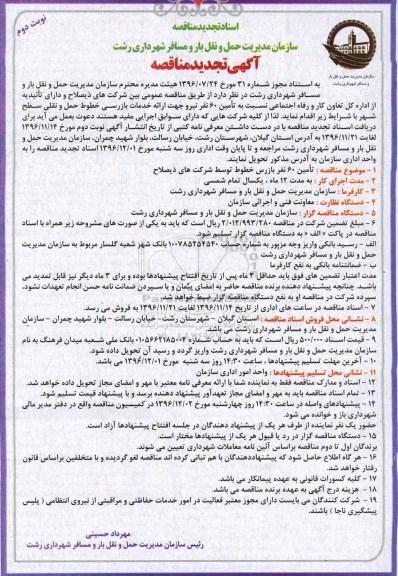 نوبت دوم
اسناد تجدید مناقصه
سازمان مدیریت حمل و نقل بار و مسافر شهرداری رشت
آگهی تجدید مناقصه
به استناد مجوز شماره ۳۱ مورخ ۱۳۹۶/۰۷/۲۴ هیئت مدیره محترم سازمان مدیریت حمل و نقل بار و
مسافر شهرداری رشت در نظر دارد از طریق مناقصه عمومی بین شرکت های ذیصلاح و دارای تأئیدیه
از اداره کل تعاون کار و رفاه اجتماعی نسبت به تأمین ۶۰ نفر نیرو جهت ارائه خدمات بازرسی خطوط حمل و نقلی سطح
شهر با شرایط زیر اقدام نماید. لذا از کلیه شرکت هایی که دارای سوابق اجرایی مفید هستند دعوت بعمل می آید برای
دریافت اسناد تجدید مناقصه با در دست داشتن معرفی نامه کتبی از تاریخ انتشار آگهی نوبت دوم مورخ ۱۳۹۶/۱۱/۱۴
لغایت ۱۳۹۶/۱۱/۲۱ به آدرس استان گیلان، شهرستان رشت، خیابان رسالت، بلوار شهید چمران، سازمان مدیریت حمل و
نقل بار و مسافر شهرداری رشت مراجعه و تا پایان وقت اداری روز سه شنبه مورخ ۱۳۹۶/۱۲/۰۱ اسناد تجدید مناقصه را به
واحد اداری سازمان به آدرس مذکور تحویل نمایند.
۱ - موضوع مناقصه : تأمین ۶۰ نفر بازرس خطوط توسط شرکت های ذیصلاح
۲ - مدت اجرای کار : به مدت ۱۲ ماه ، یکسال تمام شمسی
۳ - کارفرما : سازمان مدیریت حمل و نقل بار و مسافر شهرداری رشت
۴ - دستگاه نظارت : معاونت فنی و اجرائی سازمان
۵ - دستگاه مناقصه گزار : سازمان مدیریت حمل و نقل بار و مسافر شهرداری رشت
۶ - مبلغ تضمین شرکت در مناقصه ۲/۰۱۲/۹۹۳/۲۸۰ ریال است که باید به یکی از صورت های مشروحه زیر همراه با اسناد
مناقصه در پاکت « الف » به دستگاه مناقصه گزار تسلیم شود.
الف - رسید بانکی واریز وجه مزبور به شماره حساب ۱۰۰۷۸۵۲۵۴۵۴۰ بانک شهر شعبه گلسار مربوط به سازمان مدیریت
حمل و نقل بار و مسافر شهرداری رشت
ب - ضمانتنامه بانکی به نفع کارفرما
مدت اعتبار تضمین های فوق باید حداقل ۳ ماه پس از تاریخ افتتاح پیشنهادها بوده و برای ۳ ماه دیگر نیز قابل تمدید می
باشد. چنانچه پیشنهاد دهنده برنده مناقصه حاضر به امضای پیمان و یا سپردن ضمانت نامه حسن انجام تعهدات نشود،
سپرده شرکت در مناقصه او به نفع دستگاه مناقصه گزار ضبط خواهد شد.
۷ - اسناد مناقصه در ساعت های اداری از تاریخ ۱۳۹۶/۱۱/۱۴ لغایت ۱۳۹۶/۱۱/۲۱ به فروش می رسد.
۸ - نشانی محل فروش اسناد مناقصه : استان گیلان - شهرستان رشت - خیابان رسالت - بلوار شهید چمران - سازمان
مدیریت حمل و نقل بار و مسافر شهرداری رشت می باشد.
۹ - قیمت اسناد ۵۰۰/۰۰۰ ریال است که باید به حساب شماره ۰۱۰۵۶۶۲۱۸۵۰۰۴ بانک ملی شعبه میدان فرهنگ به نام
سازمان مدیریت حمل و نقل بار و مسافر شهرداری رشت واریز گردد و رسید آن تحویل داده شود.
۱۰ - آخرین مهلت تسلیم پیشنهادها ، ساعت ۱۴:۳۰ روز سه شنبه مورخ ۱۳۹۶/۱۲/۰۱ می باشد.
۱۱ - نشانی محل تسلیم پیشنهادها : واحد امور اداری سازمان
۱۲ - اسناد و مدارک مناقصه فقط به نماینده شما با ارائه معرفی نامه معتبر با مهر و امضای مجاز تحویل داده خواهد شد.
۱۳ - تمام اسناد مناقصه باید به مهر و امضای مجاز تعهدآور پیشنهاد دهنده برسد و با پیشنهاد قیمت تسلیم شود.
۱۴ - پیشنهادهای واصله در ساعت ۱۴:۳۰ روز چهارشنبه مورخ ۱۳۹۶/۱۲/۰۲ در کمیسیون مناقصه واقع در دفتر مدیر مالی
شهرداری باز و خوانده می شود.
حضور یک نفر نماینده از طرف هر یک از پیشنهاد دهندگان در جلسه افتتاح پیشنهادها آزاد است.
۱۵ - دستگاه مناقصه گزار در رد یا قبول هر یک از پیشنهادها مختار است.
برندگان اول تا دوم مناقصه براساس آئین نامه معاملات شهرداری تعیین می شوند.
۱۶ - هر گاه اطلاع حاصل شود که پیشنهاددهندگان با هم تبانی کرده اند مناقصه لغو گردیده و با متخلفین براساس قانون
رفتار خواهد شد.
۱۷ - کلیه کسورات قانونی به عهده پیمانکار می باشد.
۱۸ - هزینه درج آگهی به عهده برنده مناقصه می باشد.
۱۹ - شرکت کنندگان می بایست دارای مجوز معتبر فعالیت در امور خدمات حفاظتی و مراقبتی از نیروی انتظامی ( پلیس
پیشگیری ناجا ) باشند.
مهرداد حسینی
رئیس سازمان مدیریت حمل و نقل بار و مسافر شهرداری رشت